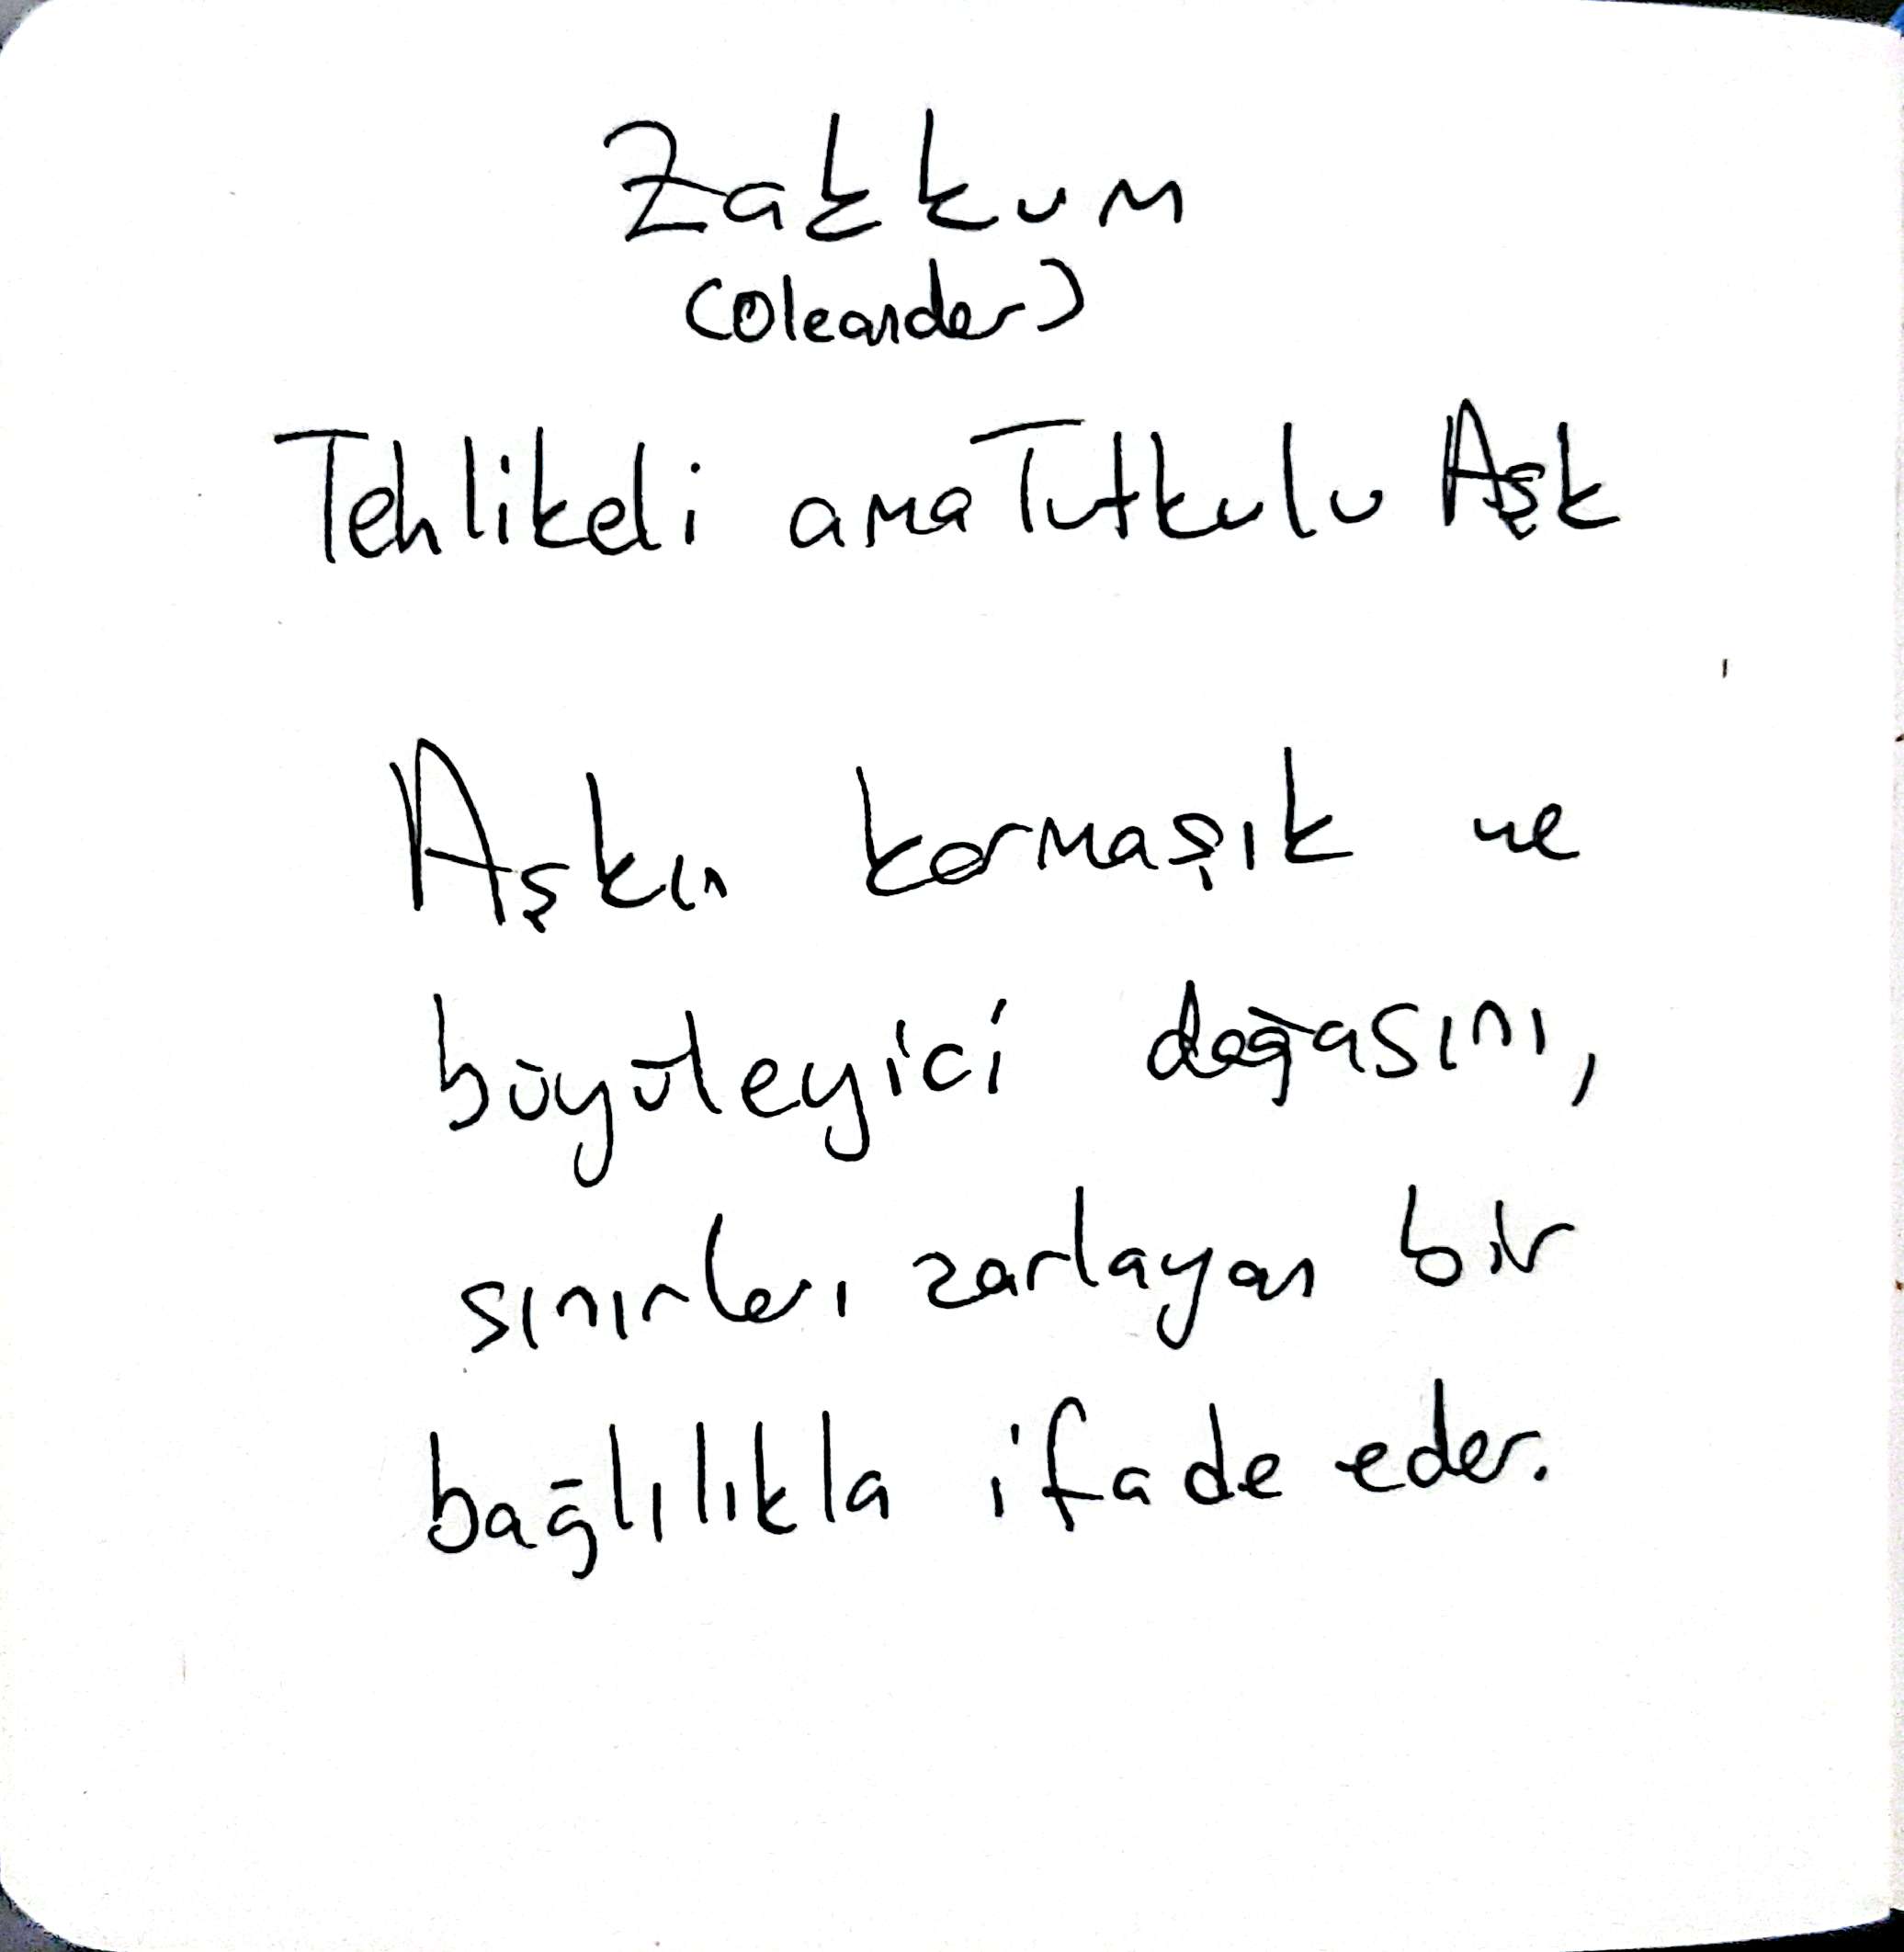 Zakkum
(Oleander)
Tehlikeli ama Tutkulu Aşk
Aşkın karmaşık ve
büyüleyici doğasını,
sınırları zorlayan bir
bağlılıkla ifade eder.